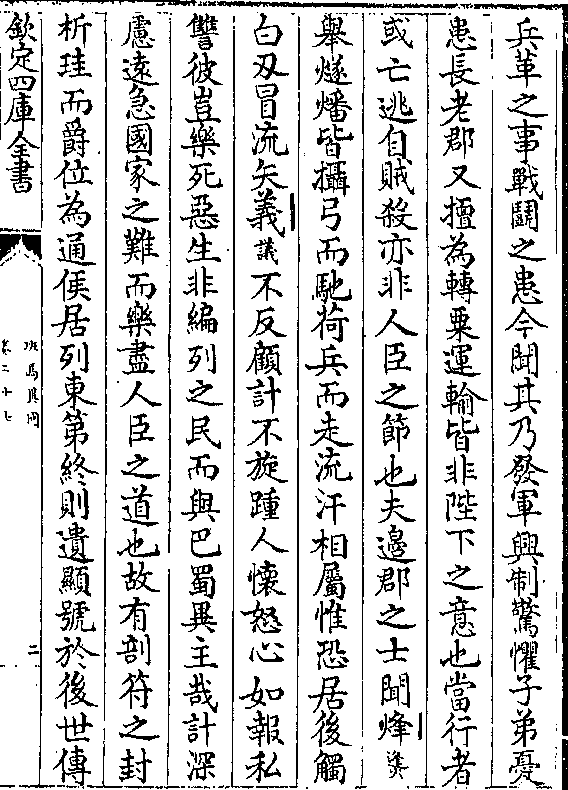 兵革之事戰鬬之患今聞其乃發軍興制驚懼子弟憂
患長老郡又擅為轉粟運輸皆非陛下之意也當行者
或亡逃自賊殺亦非人臣之節也夫邊郡之士聞烽㷭
舉燧燔皆攝弓而馳荷兵而走流汗相屬惟恐居後觸
白刃冒流矢義議不反顧計不旋踵人懷怒心如報私
讐彼豈樂死惡生非編列之民而與巴蜀異主哉計深
慮遠急國家之難而樂盡人臣之道也故有剖符之封
析珪而爵位為通侯居列東第終則遺顯號於後世傳
欽定四庫全書
班馬異同
卷二十七
二